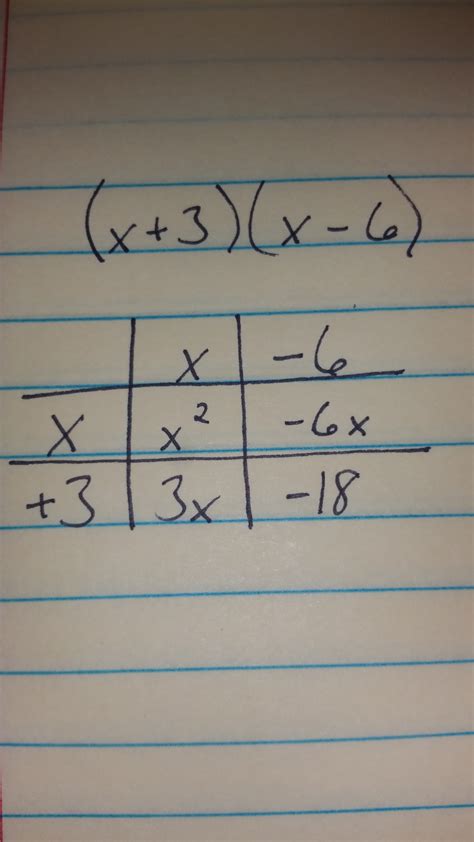 (x+3)(x-6)
x -6
x x² -6x
+3 3x -18